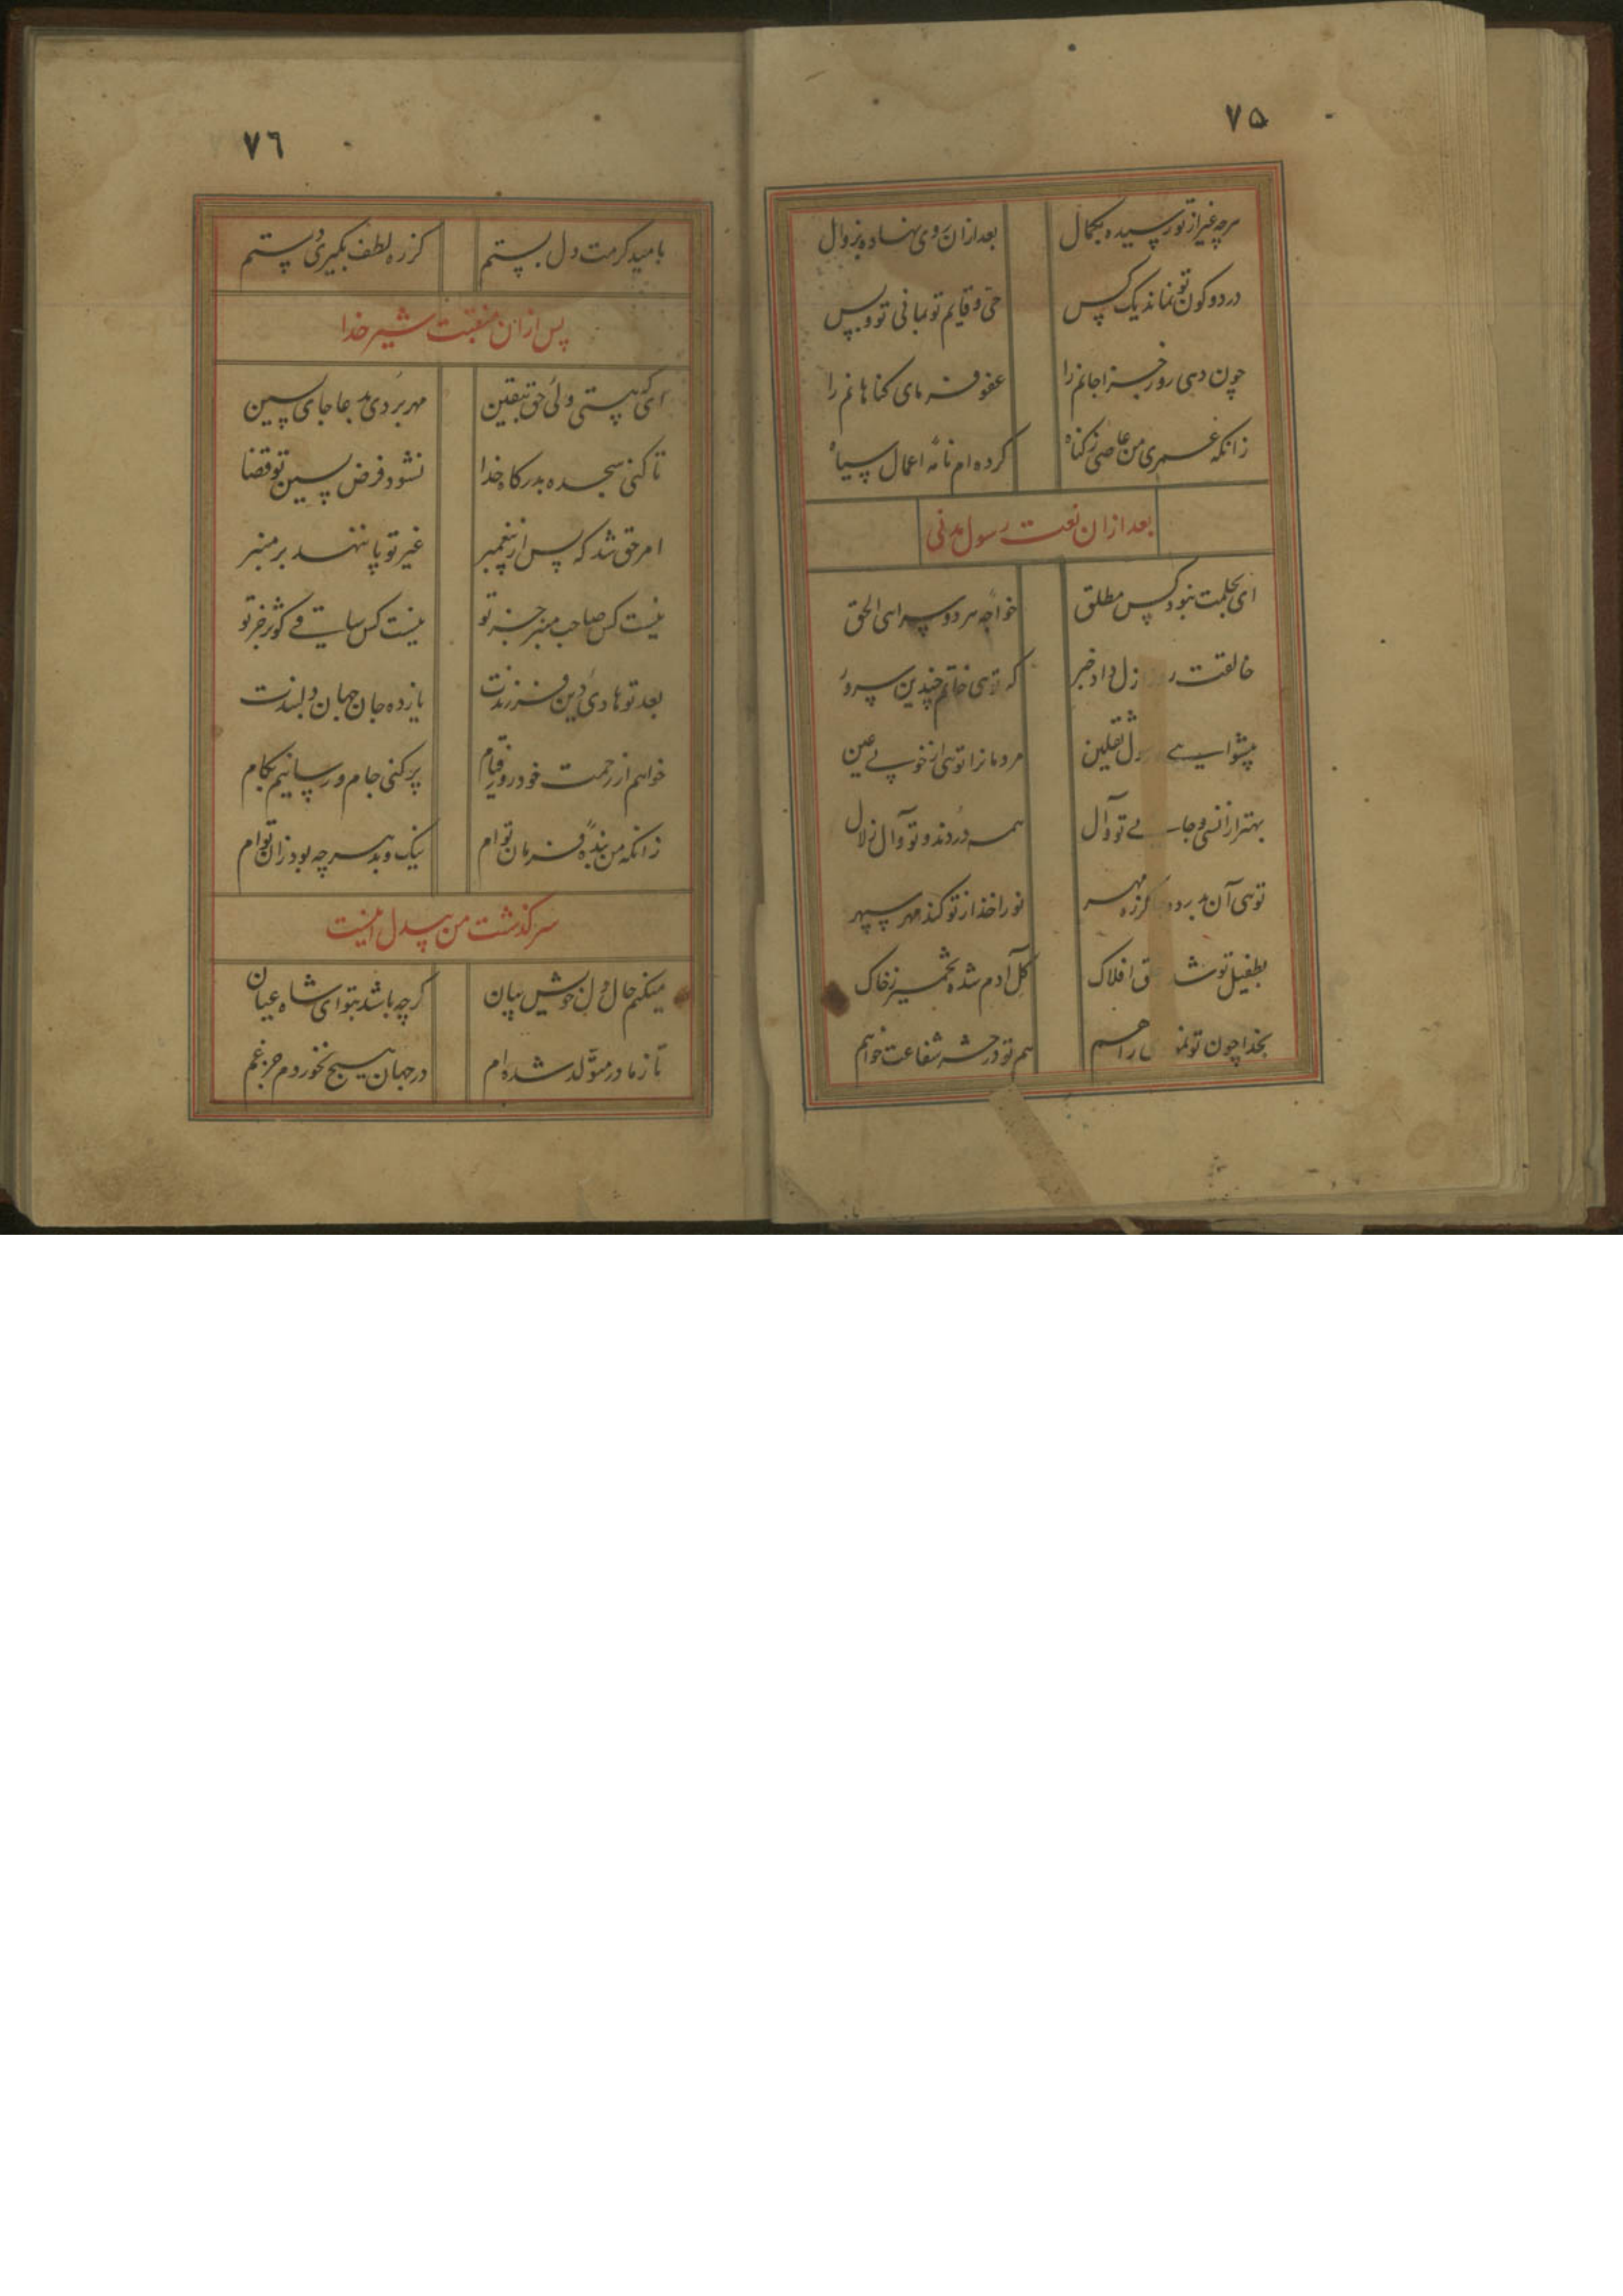 ۷۵
هرچه غیر از تو رسیده بکمال بعد ازان روی نهاده بزوال
در دو کون تو نماند یک کس حی و قایم تو بمانی تو و بس
چون دهی روز جزا جانم را عفو فرمای کناهانم را
زانکه عمری من عاصی ز کناه کرده ام نامه اعمال سیاه
بعد ازان نعت رسول مدنی
ای بحلمت نبود کس مطلق خواجه هر دو سرای الحق
خالقت روز ازل داد خبر که توی خاتم چندین سرور
پیشوای رسل ثقلین مردمانرا توی از خوبی عین
بهتر از انسی و جانی تو و آل همه دردند و تو و آل زلال
توی آن کز ره مهر نور اخذ از تو کند مهر سپهر
بطفیل تو شد افلاک کل آدم شده تخمیر ز خاک
بخدا چون تو راهم هم تو در حشر شفاعت خواهم
۷٦
بامید کرمت دل بستم کز ره لطف بکیری دستم
پس ازان منقبت شیر خدا
ای که هستی ولی حق بیقین مهر بردی بدعا جای پسین
تا کنی سجده بدرکاه خدا نشود فرض پسین تو قضا
امر حق شد که پس از پیغمبر غیر تو پا ننهد بر منبر
نیست کس صاحب منبر جز تو نیست کس ساقی کوثر جز تو
بعد تو هادی دین فرزندت یازده جان جهان دلبندت
خواهم از رحمت خود روز قیام پر کنی جام و رسانیم بکام
زانکه من بنده فرمان توام نیک و بد هرچه بود زان توام
سرکذشت من بیدل اینست
میکنم حال دل خویش بیان کرچه باشد بتو ای شاه عیان
تا ز مادر متولد شده ام در جهان هیچ نخوردم جز غم